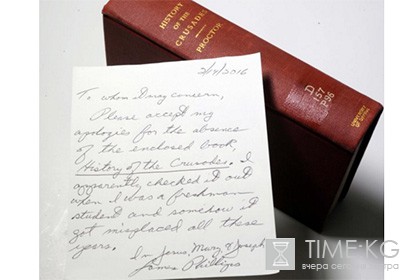 HISTORY
OF THE
CRUSADES
PROCTOR
D
157
P96
2/19/2016
To whom I may concern,
Please accept my
apologies for the absence
of the enclosed book,
History of the Crusades. I
apparently checked it out
when I was a freshman
student and somehow it
got misplaced all these
years.
In Jesus, Mary & Joseph
James Phillips
TIME-KG
вчера сегодня завтра